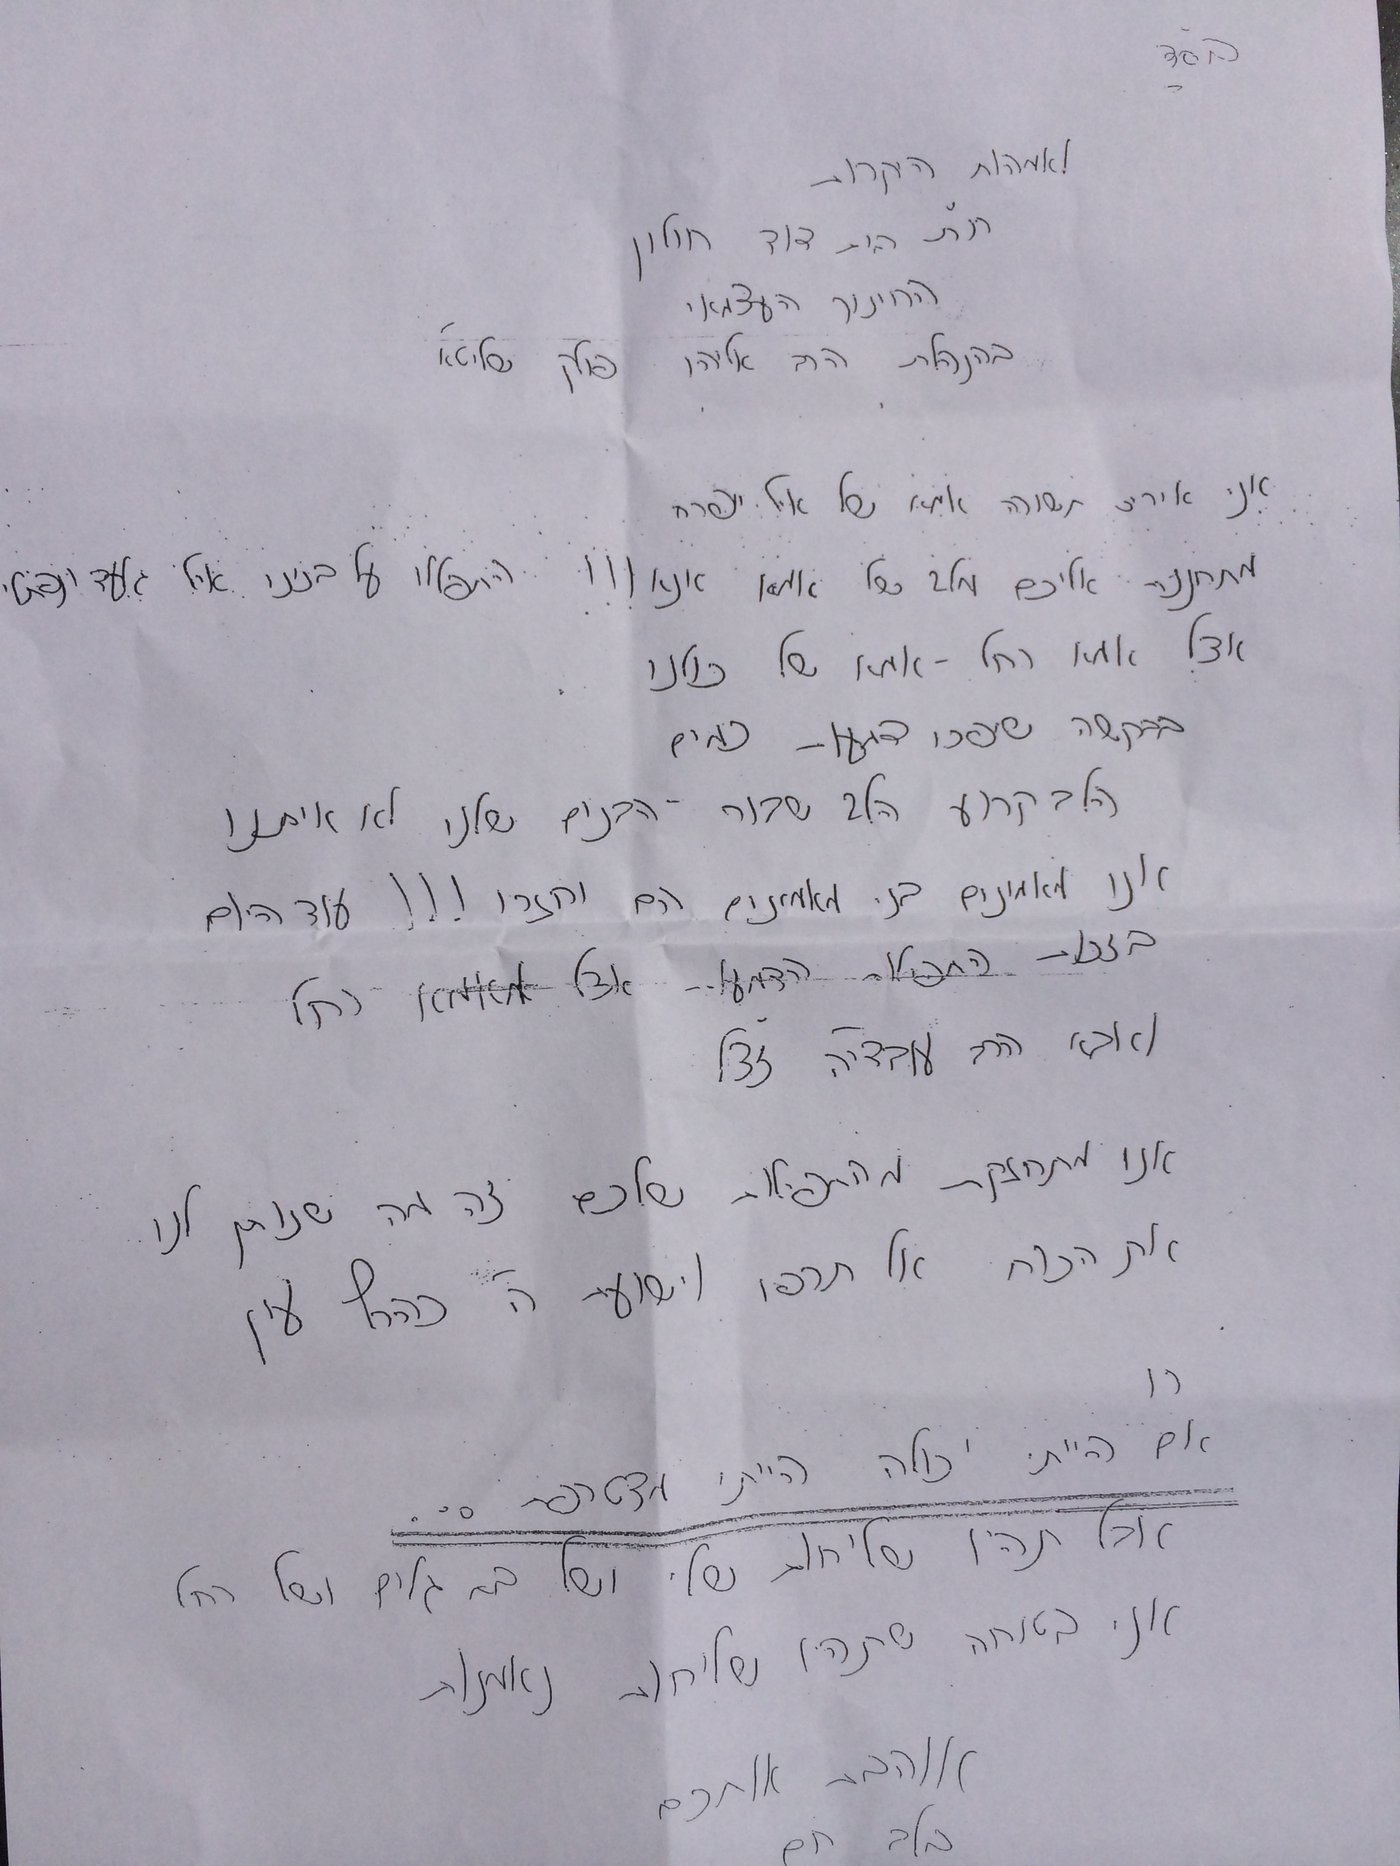 בס"ד
לאמהות היקרות
ת"ת בית דוד חולון
החינוך העצמאי
בהנהלת הרב אליהו פולק שליט"א
אני איריס תשורה אמא של אייל יפרח
מתחננת אליכם מלב של אמא אנא!!! התפללו על בנינו אייל גלעד ונפתלי
אצל אמא רחל - אמא של כולנו
בבקשה שיפכו דמעות כמים
הלב קרוע הלב שבור - הבנים שלנו לא איתנו
אנו מאמינים בני מאמינים הם יחזרו!!! עוד היום
בזכות התפילות הדמעות אצל אמא רחל
ואבא הרב עובדיה זצ"ל
אנו מתחזקת מהתפילות שלכם זה מה שנותן לנו
את הכוח אל תרפו וישועת ה' כהרף עין
רו
אם הייתי יכולה הייתי מצטרפת
אבל תהיו שליחות שלי ושל בת גלים ושל רחל
אני בטוחה שתהיו שליחות נאמנות
אוהבת אתכם
בלב חם